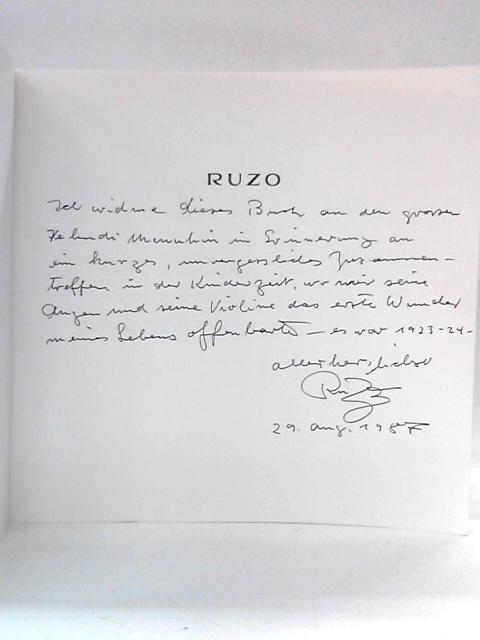 RUZO
Ich widme dieses Buch an den grossen
Yehudi Menuhin in Erinnerung an
ein kurzes, unvergessliches Zusammen-
treffen in der Kinderzeit, wo mir seine
Augen und seine Violine das erste Wunder
meines Lebens offenbarte – es war 1923-24-
allerherzlichst
Ruzo
29. Aug. 1987